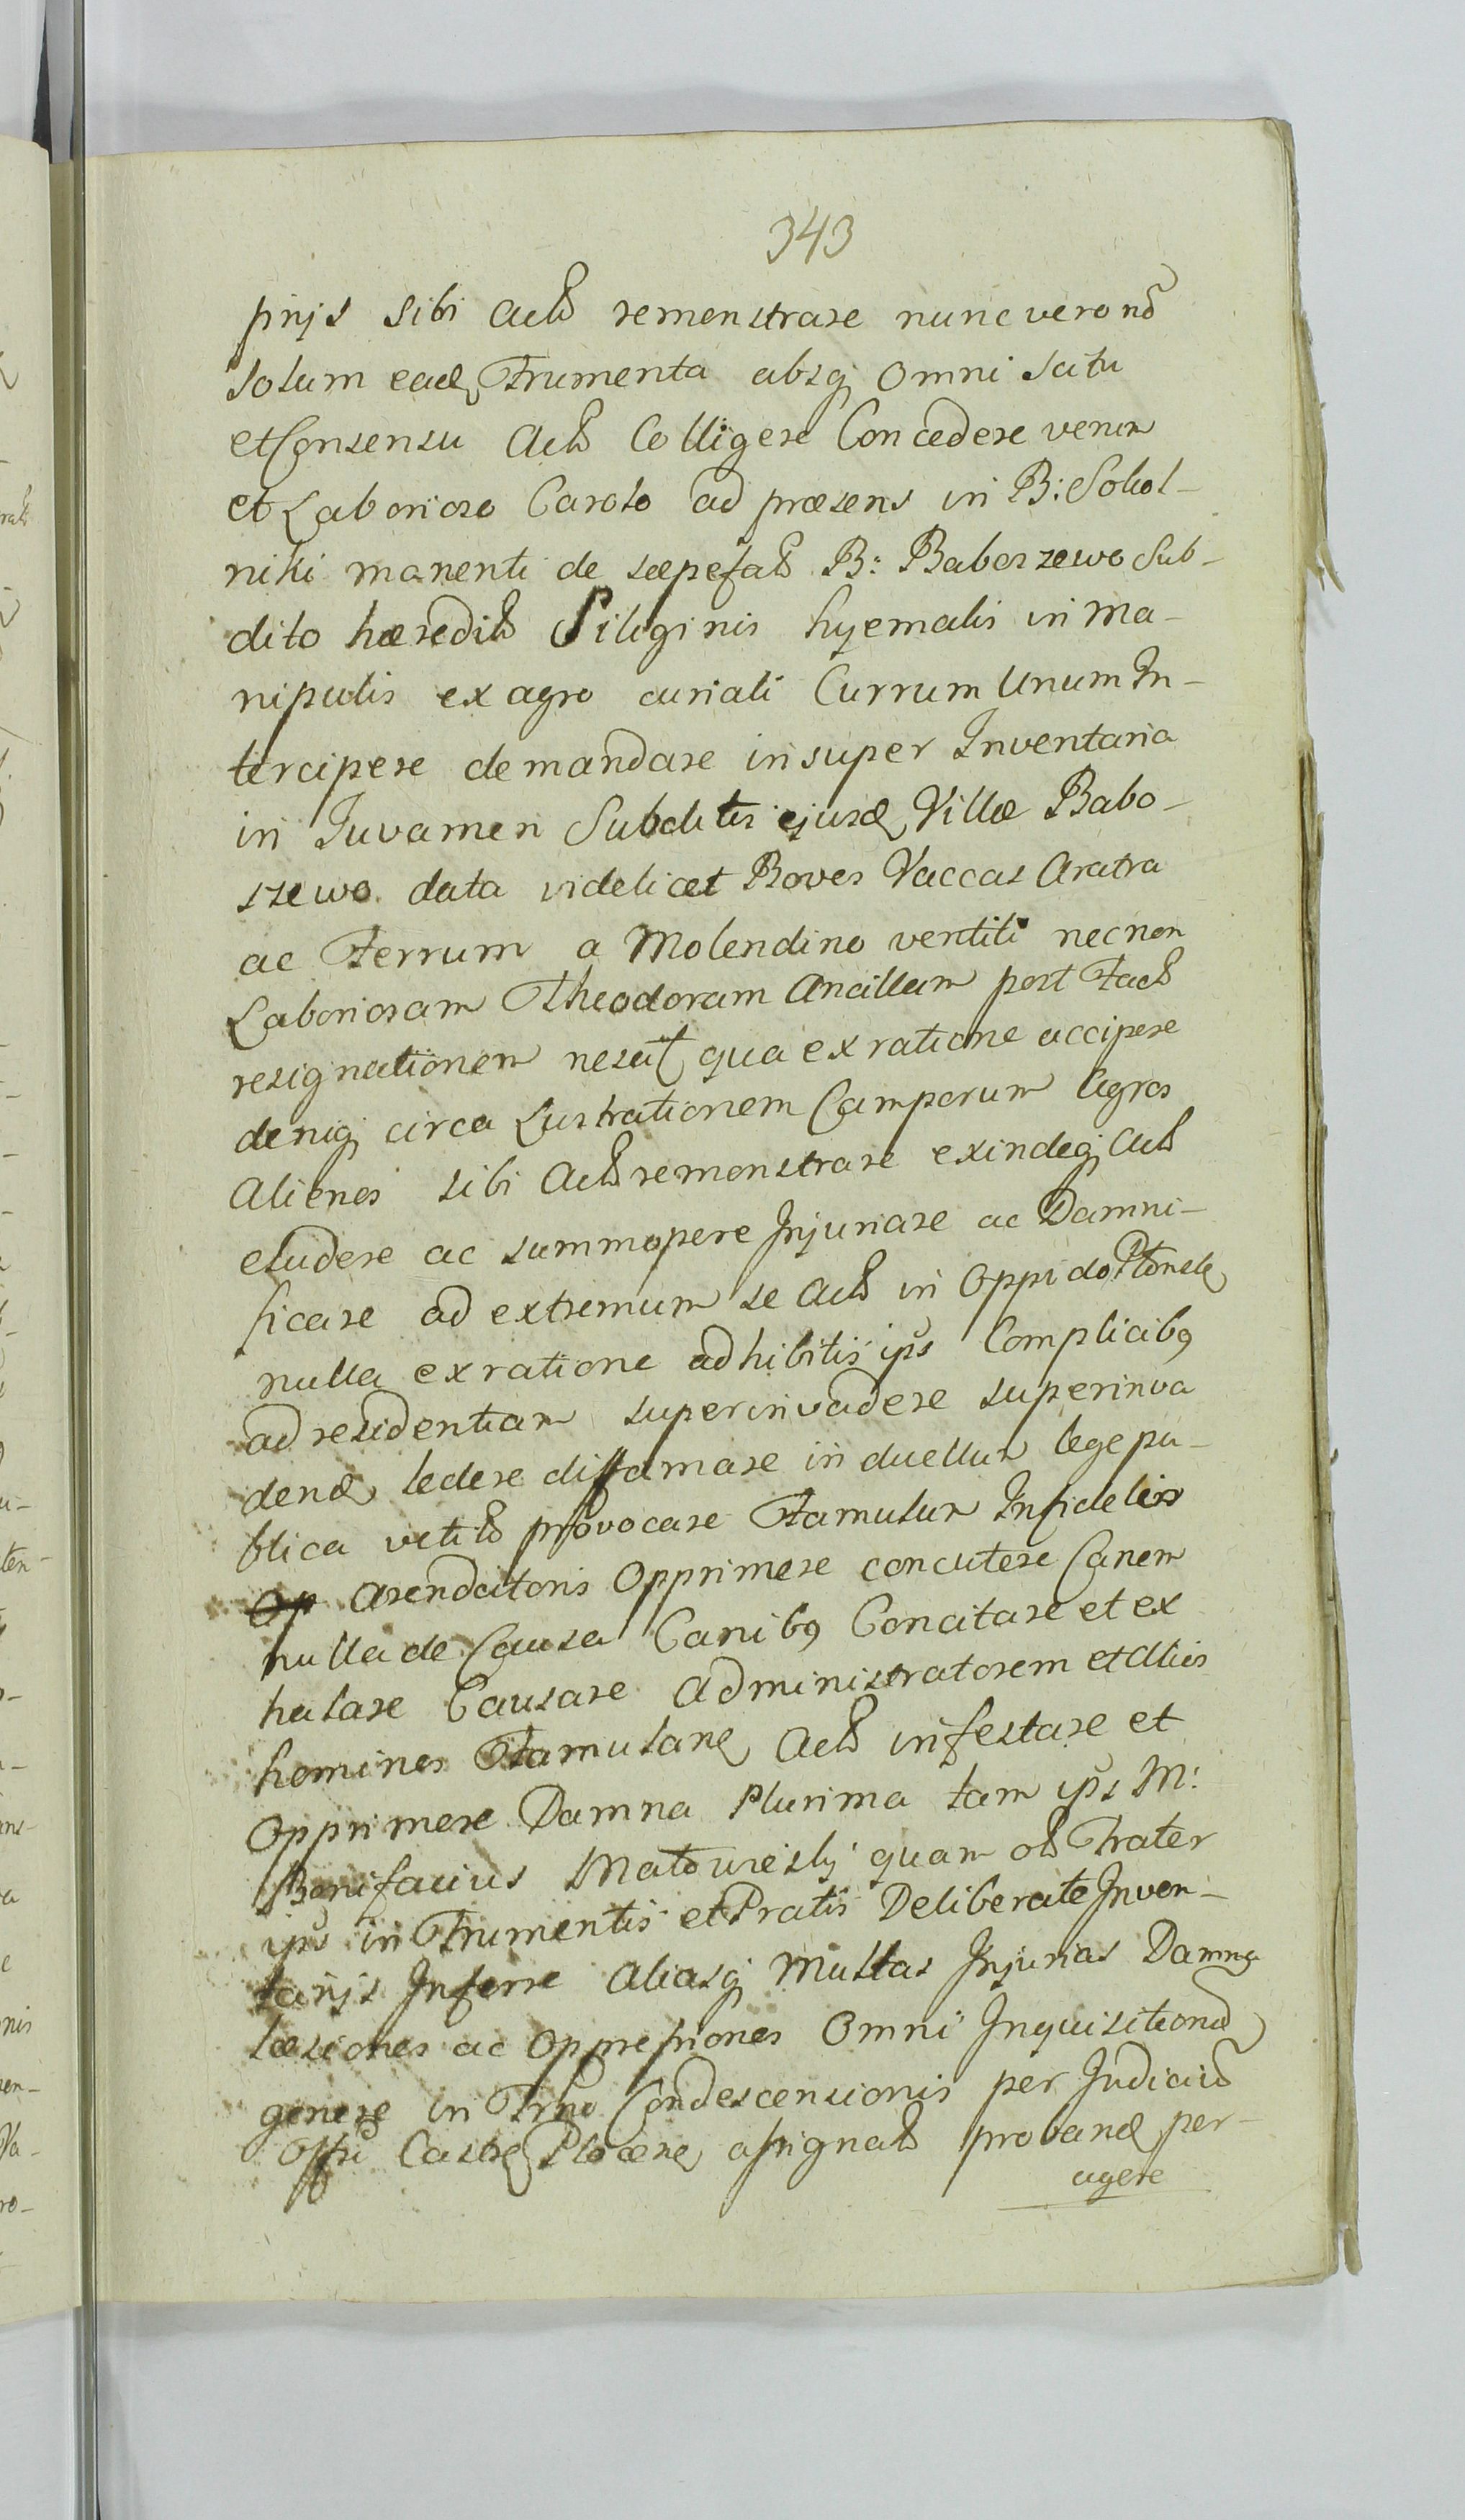 343
pijs sibi Actō remonstrare nunc vero nō
solum eadē Frumenta absq; Omni scitu
et Consensu Actō Colligere Concedere verum
et Laborioso Carolo ad præsens in B: Sokol-
niki manenti de sæpefatō B: Baboszewo Sub-
dito hæreditō Siliginis hyemalis in Ma-
nipulis ex agro curiali Currum Unum In-
tercipere demandare insuper Inventaria
in Juvamen Subditis ejusdē Villæ Babo-
szewo data videlicet Boves Vaccas Aratra
ac Ferrum a Molendino ventili necnon
Laboriosam Theodoram Ancillam post Factō
resignationem nescit qua ex ratione accipere
deniq; circa Lustrationem Camporum Agros
Alienos sibi Actō remonstrare exindeq; Actō
eludere ac summopere Injuriare ac Damni-
ficare ad extremum se Actō in Oppido Płonsk
nulla ex ratione adhibitis ips Complicibus
ad residentiam superinvadere superinva
dendō ledere diffamare in duellum lege pu-
blica vetitō provocare Famulum Infidelis
Op Arendatoris Opprimere concutere Canem
nulla de Causa Canibus Concitare et ex
halare Causare Administratorem et Alios
homines Famulanē Actō infestare et
Opprimere Damna Plurima tam ips M:
Bonifacius Małowieski quam et Frater
ips in Frumentis et Pratis Deliberate Inven-
tarijs Inferre Aliasq; Multas Injurias Damna
læsiones ac Oppressiones Omni Inquisitionū
genere in Trno Condescensionis per Judiciū
Offii Castrē Płocen assignatō probandē per-
agere